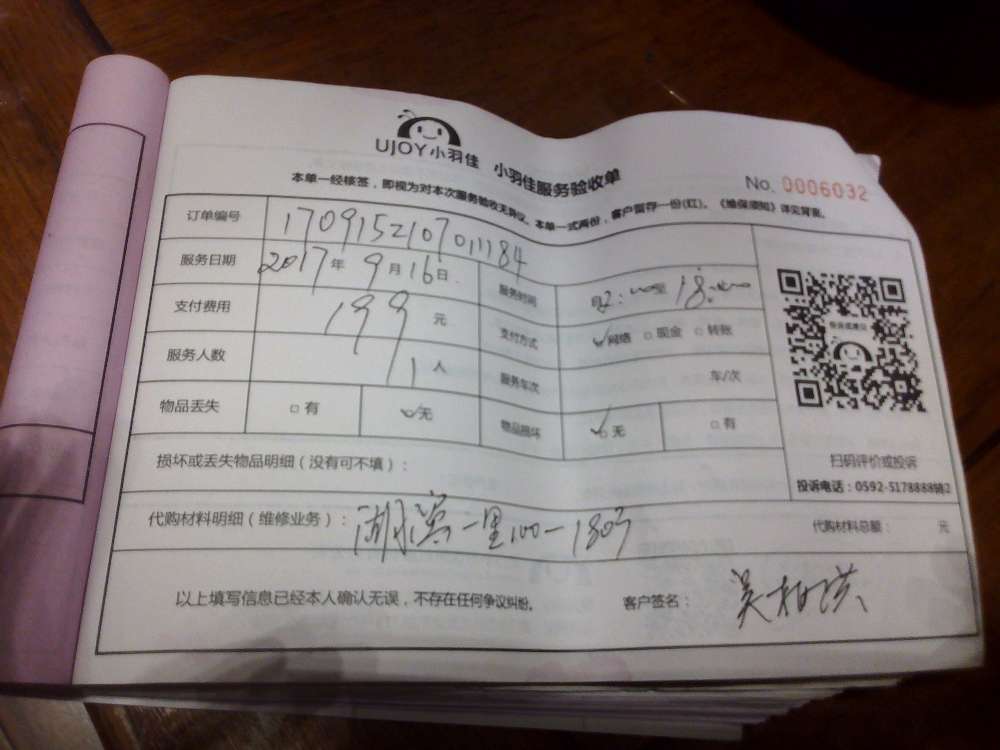 UJOY小羽佳 小羽佳服务验收单
No. 0006032
本单一经核签，即视为对本次服务验收无异议。本单一式两份，客户留存一份(红)。《维保须知》详见背面。
订单编号 170915210701184
服务日期 2017年 9月16日 服务时间 至 18:00
支付费用 199 元 支付方式 网络 □ 现金 □ 转账
服务人数 1人 服务车次 车/次
物品丢失 □ 有 ✓无 物品损坏 ✓□ 无 □ 有
损坏或丢失物品明细（没有可不填）：
扫码评价或投诉
投诉电话：0592-5178888转2
代购材料明细（维修业务）：湖滨一里100- 代购材料总额： 元
以上填写信息已经本人确认无误，不存在任何争议纠纷。 客户签名：吴柏洪